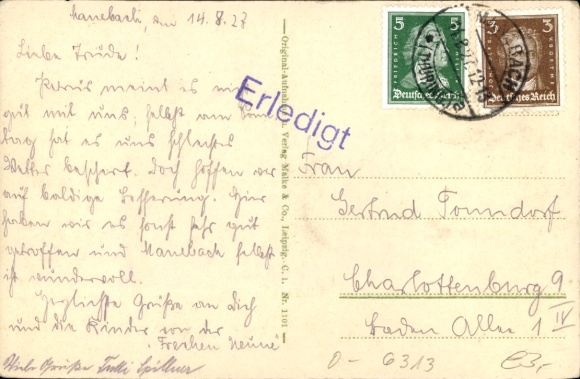 Manebach, den 14.8.27
Liebe Trude!
Petrus meint es nicht
gut mit uns; selbst am Sonn
tag hat es uns schlechtes
Wetter beschert. Doch hoffen wir
auf baldige Besserung. Hier
haben wir es sonst sehr gut
getroffen und Manebach selbst
ist wundervoll.
Herzlichste Grüße an Dich
und die Kinder von der
Frechen
Viele Grüße
Original-Aufnahme u. Verlag Malke & Co., Leipzig. C. 1. Nr. 1101
Erledigt
5 5
FRIEDRICH
Deutsches Reich
3 3
FRIEDRICH
Deutsches Reich
Frau
Gertrud Tonndorf
Charlottenburg 9
Baden Allee 1 IV
D- 6313